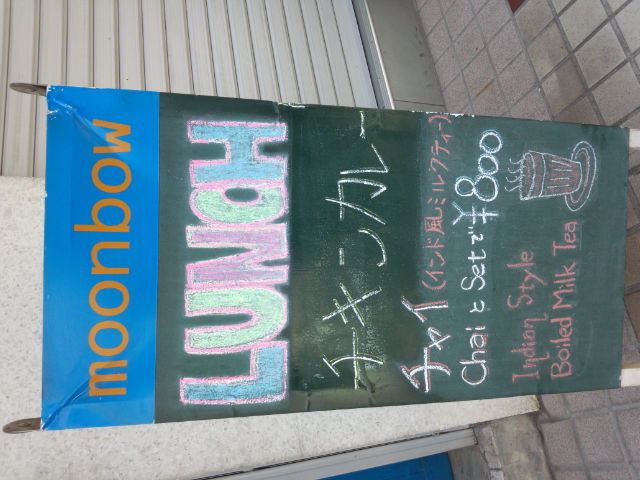 moonbow
LUNCH
チキンカレー
チャイ(インド風ミルクティー)
Chai と Setで ¥800
Indian Style
Boiled Milk Tea